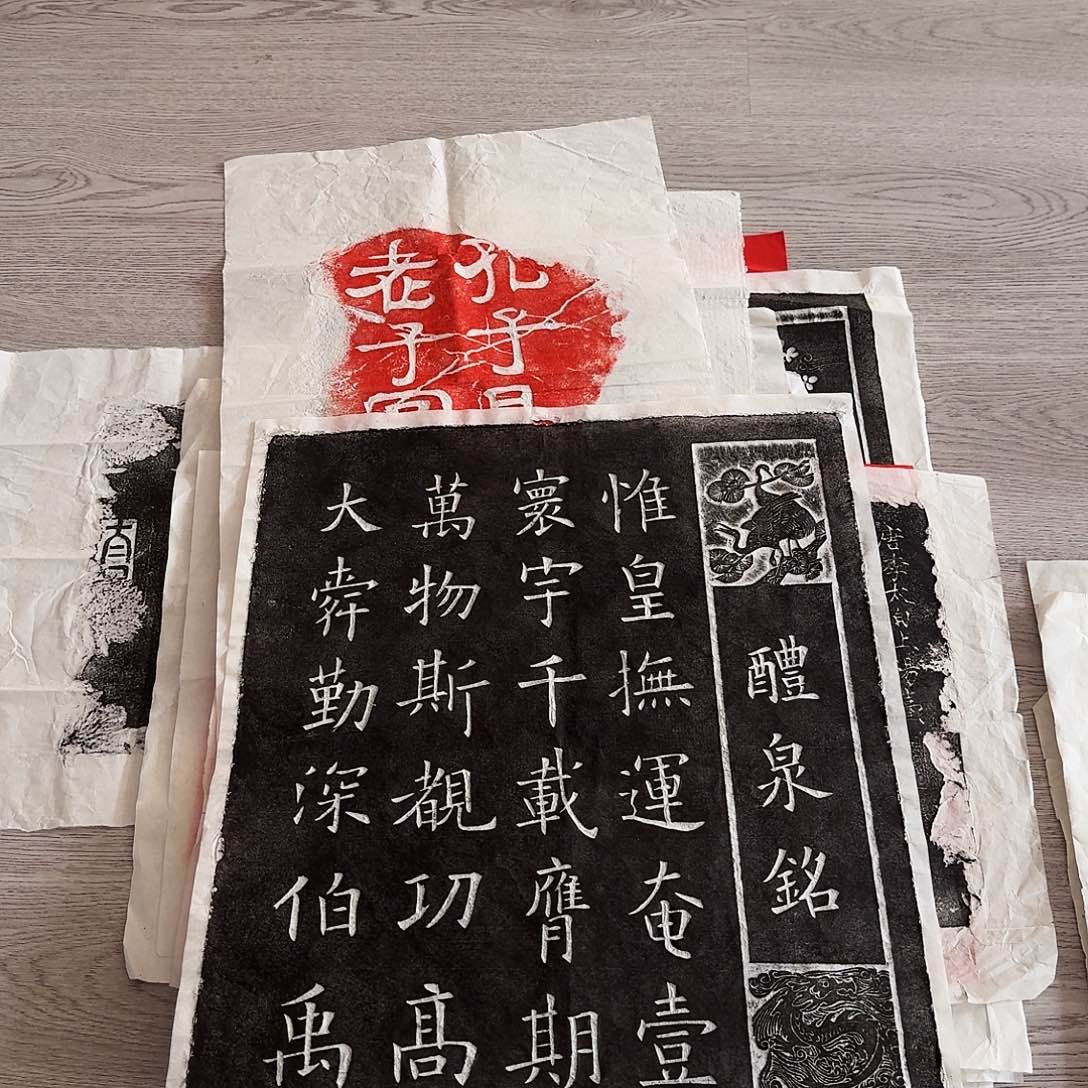 孔子
老子
醴泉銘
惟皇撫運奄壹
寰宇千載膺期
萬物斯覩功髙
大舜勤深伯禹
李太白上陽臺